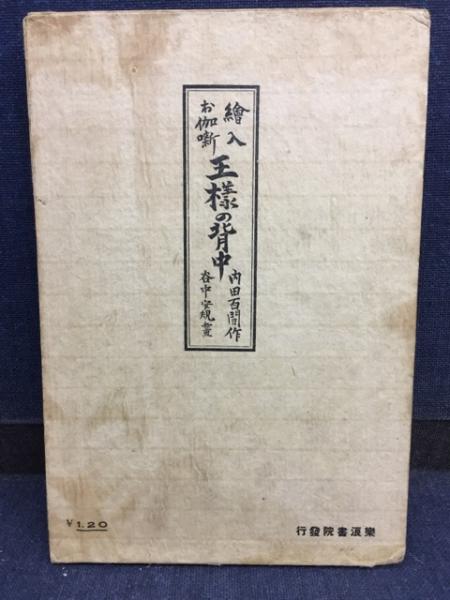 繪入
お伽噺
王樣の背中
内田百間作
谷中安規畫
¥1.20
樂浪書院發行